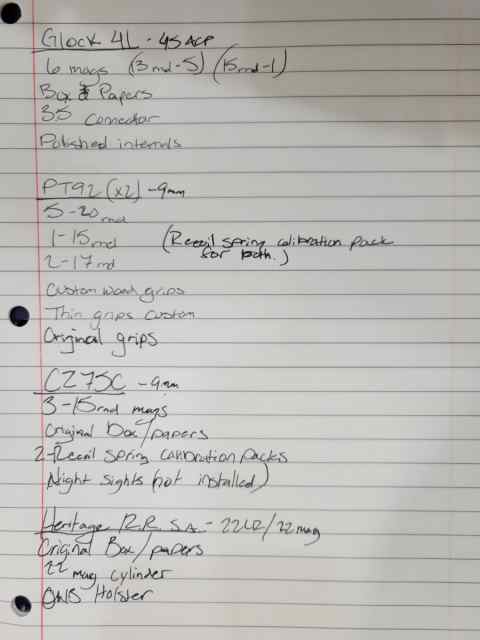 Glock 41 - 45 ACP
6 mags (3 rnd-5) (15 rnd-1)
Box & Papers
3.5 Connector
Polished internals
PT92 (x2) - 9mm
5-20 rnd
1-15 rnd (Recoil spring calibration pack
2-17 rnd for both.)
Custom wood grips
Thin grips custom
Original grips
CZ 75C - 9mm
3-15 rnd mags
Original Box/papers
2-Recoil Spring Calibration packs
Night sights (not installed)
Heritage RR S.A. - 22LR/22mag
Original Box/papers
22 mag cylinder
OWB Holster